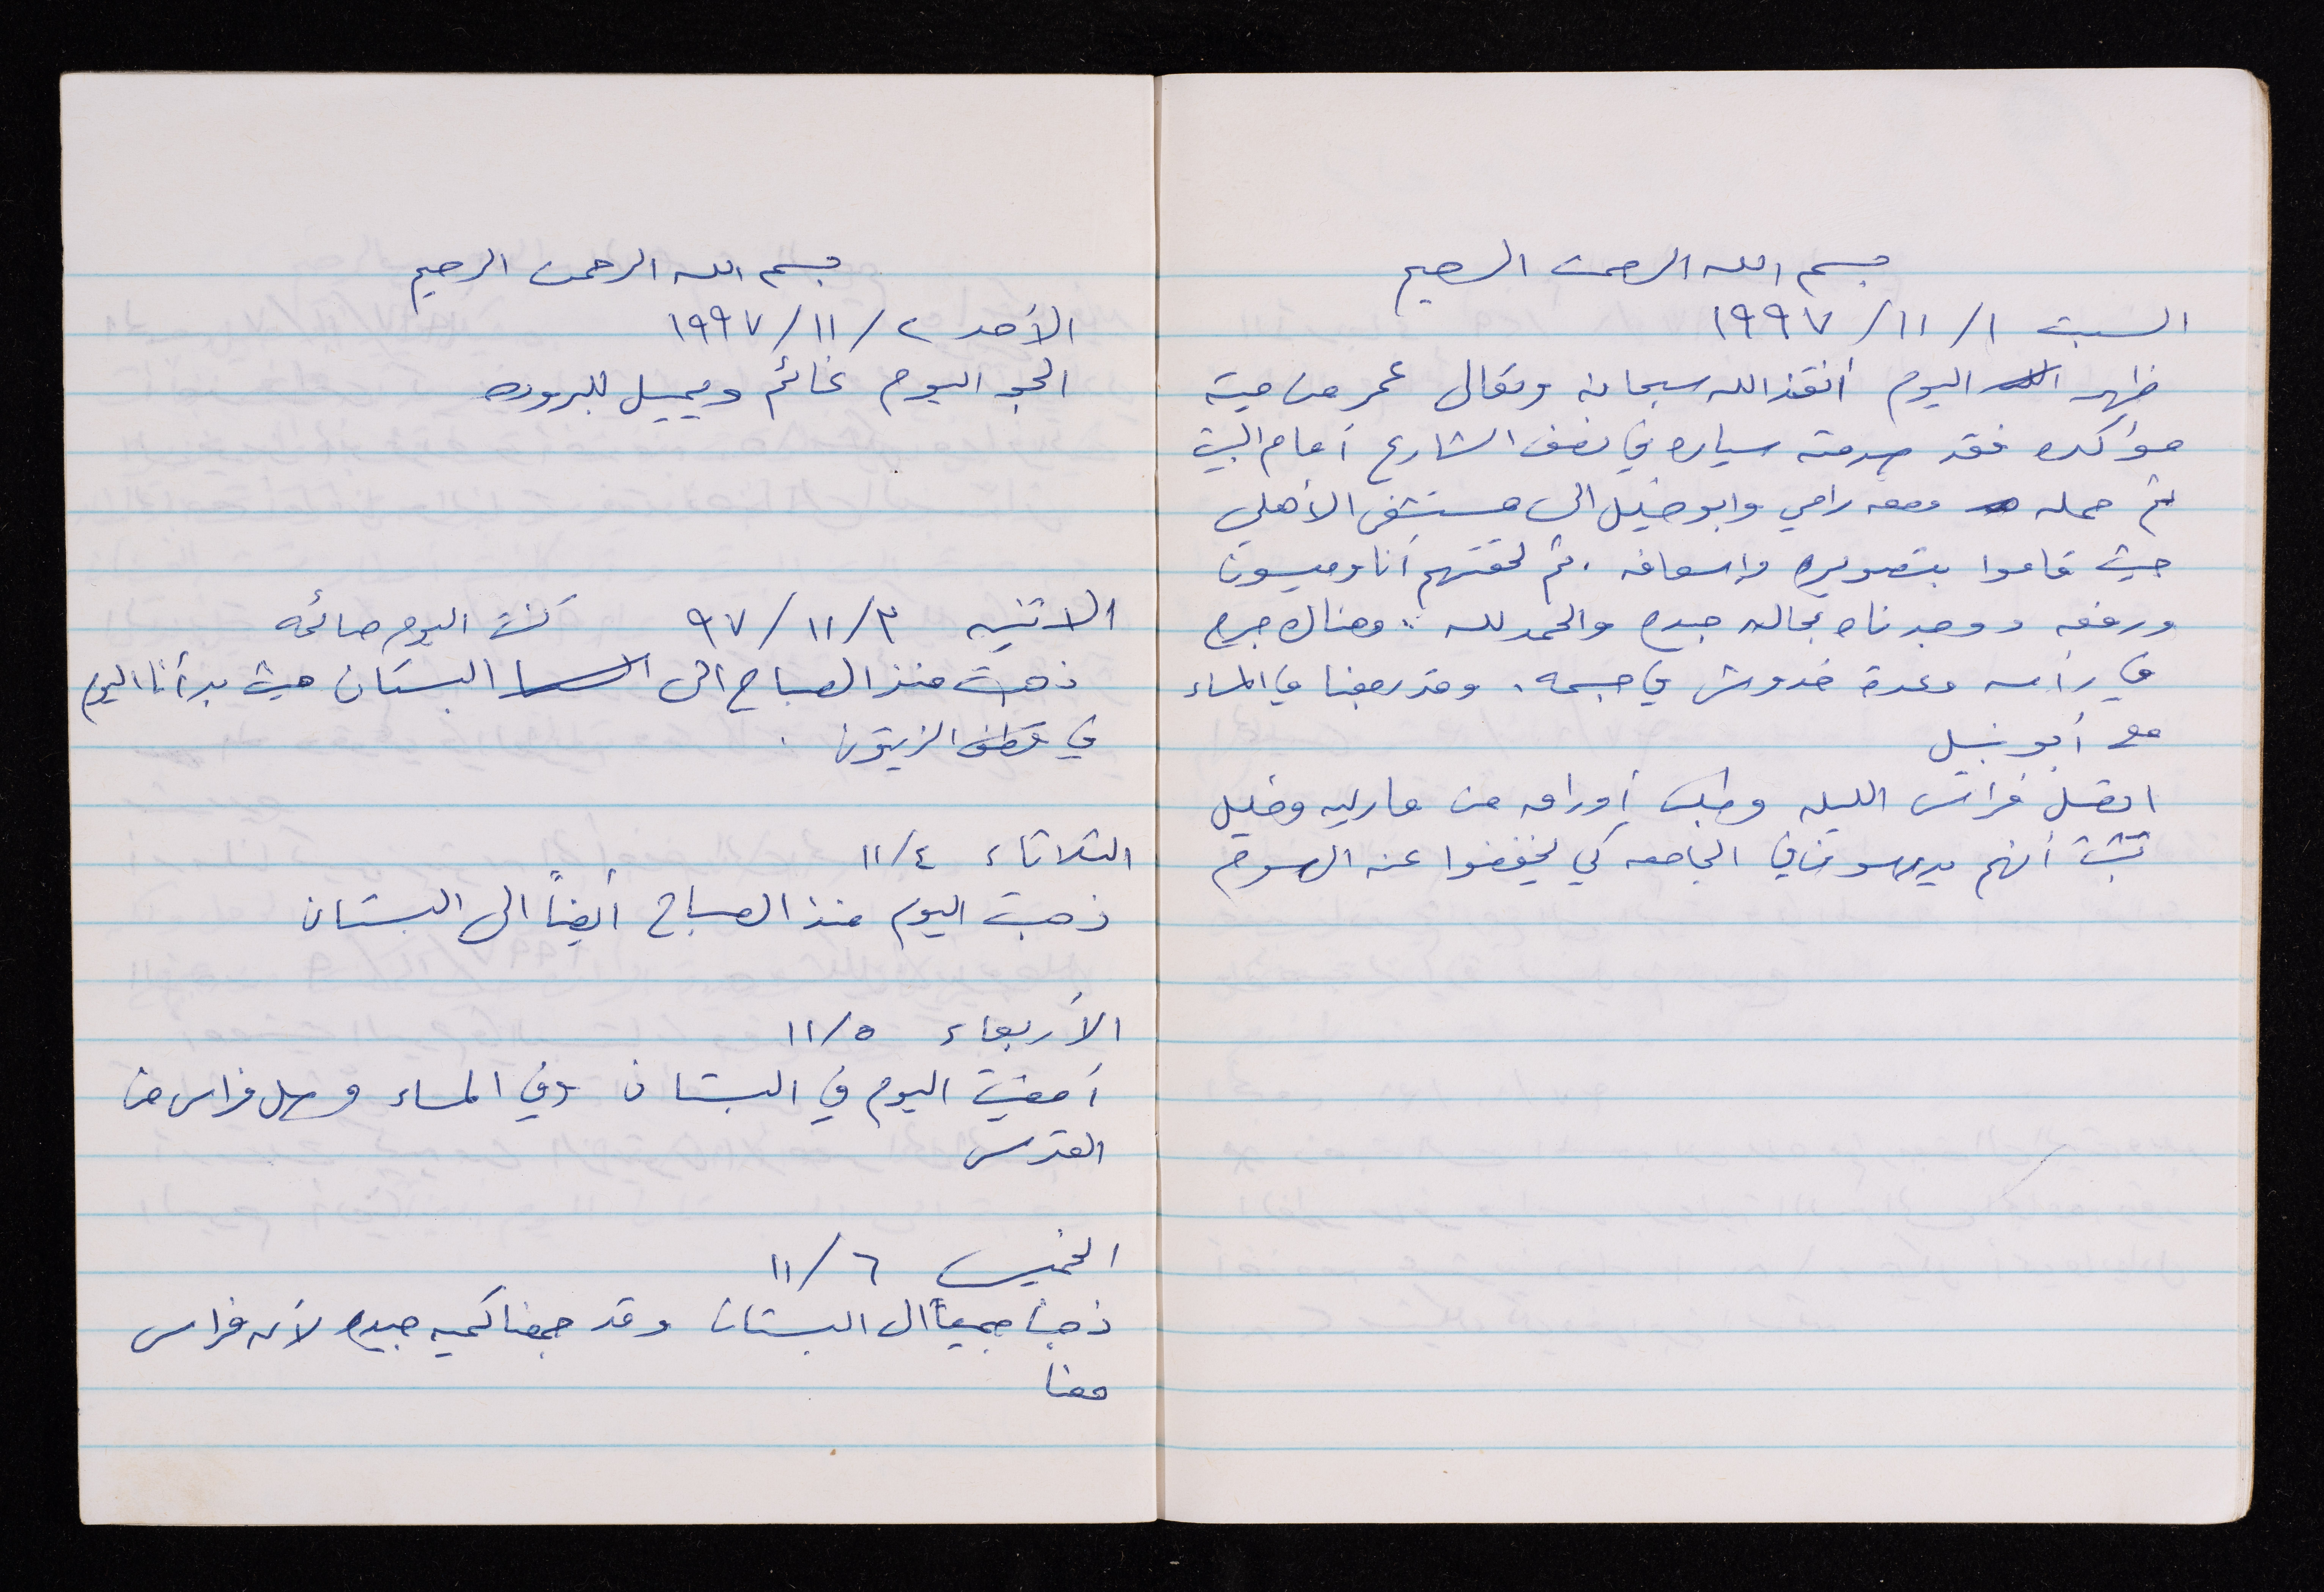 بسم الله الرحمن الرحيم
السبت ١/ ١١/ ١٩٩٧
ظهر اليوم أنقذ الله سبحانه وتعالى عمر من ميتة
مؤكده فقد صدمته سياره في نصف الشارع أمام البيت
تم حمله ومعه رامي وابو خليل الى مستشفى الأهلي
حيث قاموا بتصويره واسعافه . ثم لحقتهم أنا وميسون
ورفعه ووجدناه بحاله جيده والحمد لله .. وهناك جرح
في رأسه وعدة خدوش في جسمه . وقد رجعنا في المساء
مع أبو نبيل
اتصل فراس الليله وطلب أوراقه من ماريه وخليل
تثبت أنهم يدرسون في الجامعه كي يخفضوا عنه الرسوم
بسم الله الرحمن الرحيم
الأحد ٢/ ١١/ ١٩٩٧
الجو اليوم غائم ويميل للبروده
الاثنين ٣/ ١١/ ٩٧ كنت اليوم صائمه
ذهبت منذ الصباح الى البستان حيث بدأنا اليوم
في قطف الزيتون .
الثلاثاء ٤/ ١١
ذهبت اليوم منذ الصباح أيضاً الى البستان
الأربعاء ٥/ ١١
أمضيت اليوم في البستان وفي المساء وصل فراس من
القدس
الخميس ٦/ ١١
ذهبنا جميعاً الى البستان وقد جمعنا كميه جيده لأن فراس
معنا